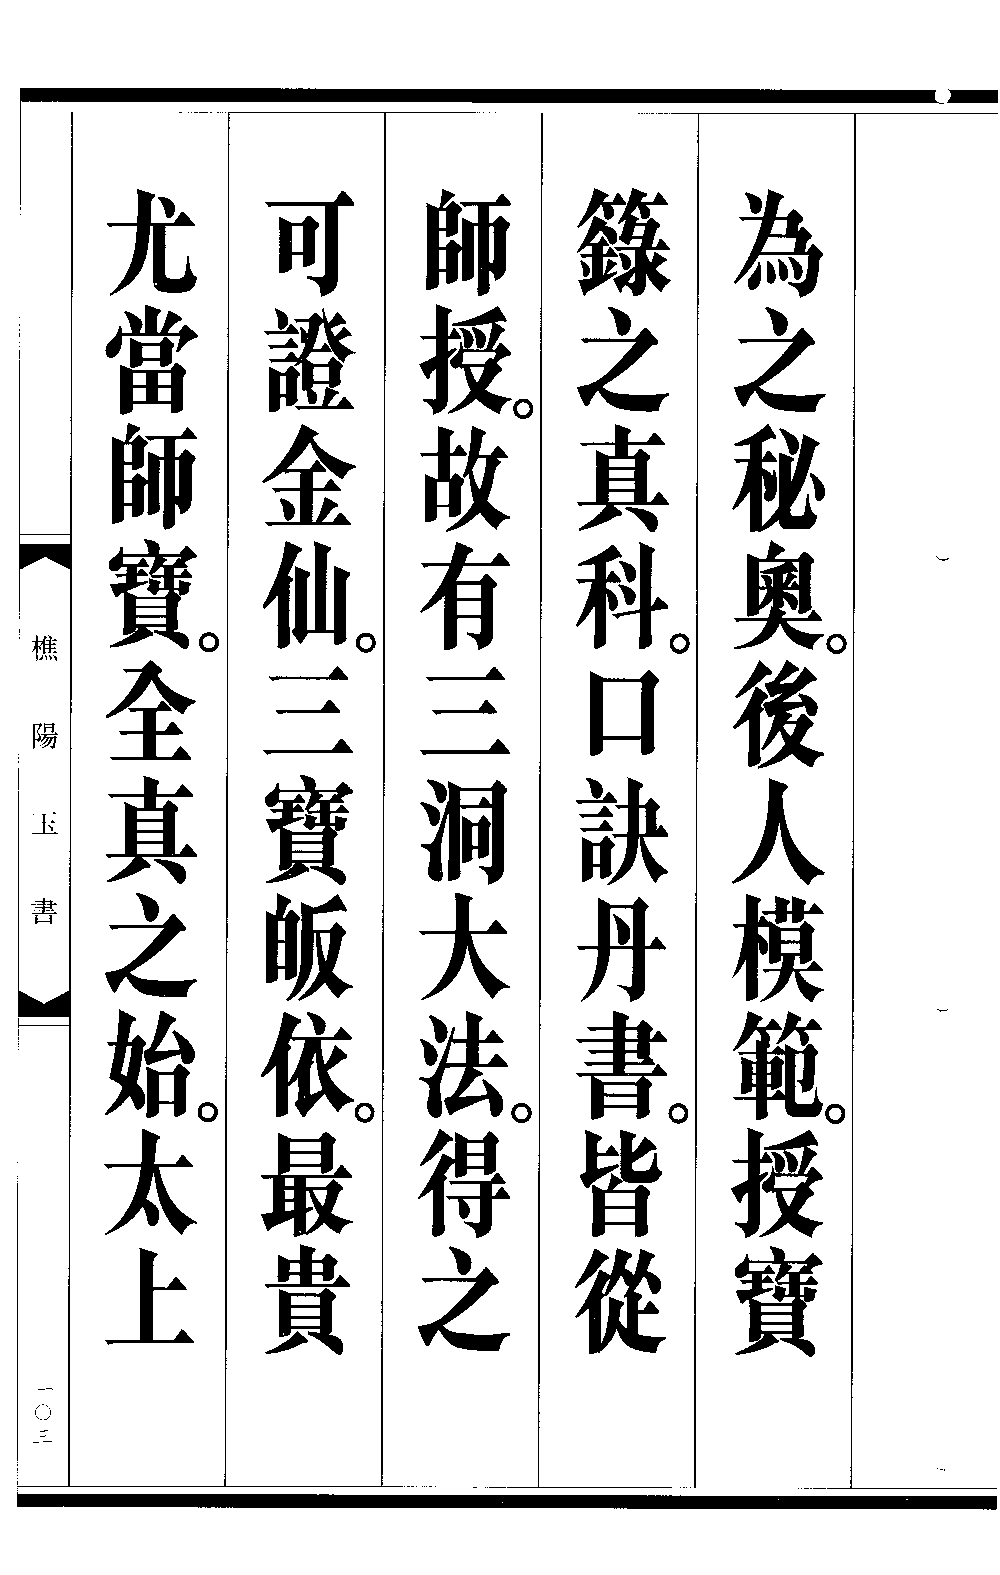 為之秘奧。後人模範。授寶
籙之真科。口訣丹書。皆從
師授。故有三洞大法。得之
可證金仙。三寶皈依。最貴
尤當師寶。全真之始。太上
樵陽玉書
一〇三